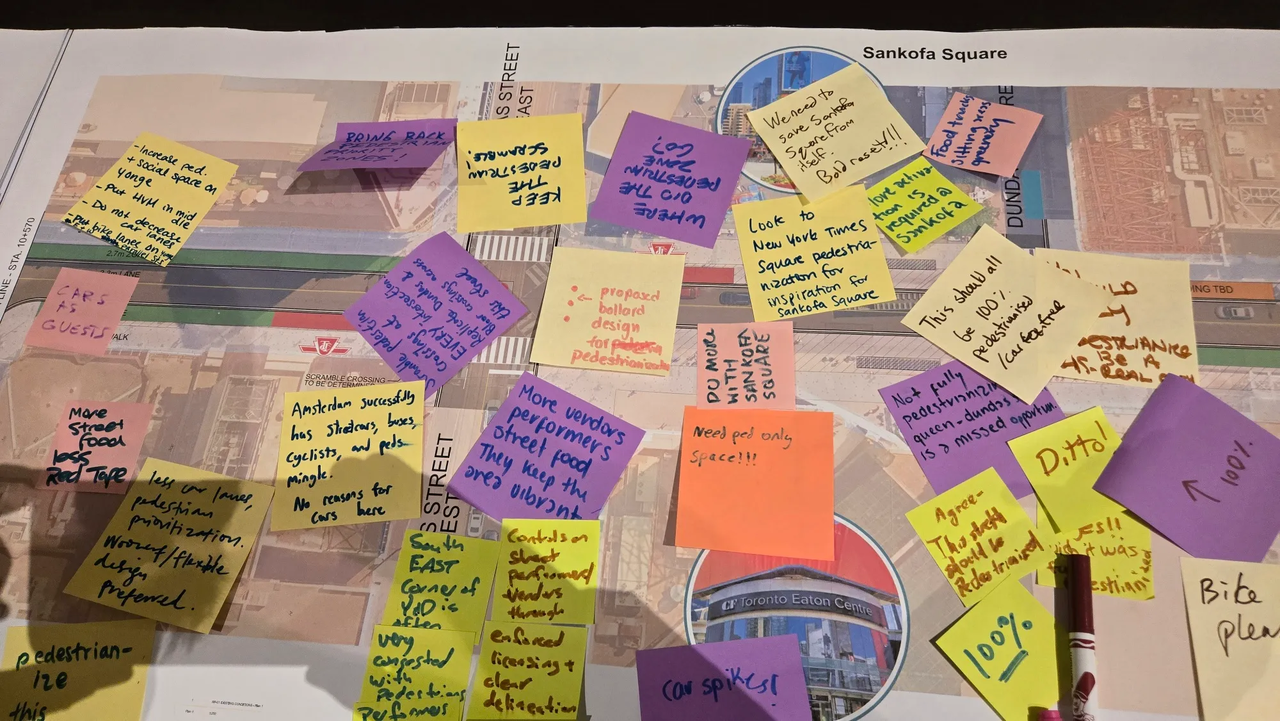 Sankofa Square
AS STREET
EAST
DUNDA
LINE - STA. 10+570
We need to
save Sankofa
Square from
itself.
Bold reset!!!
Food trucks
sitting areas
greenery
- Increase ped.
+ social space on
yonge
- Put HVM in mid
- Do not decrease
car lanes
- Put bike lanes on
BRING BACK
PEDESTRIAN
KEEP
THE
PEDESTRIAN
SCRAMBLE!
WHERE
DID THE
PEDESTRIAN
ZONE
GO?
required @
Sankofa
Look to
New York Times
Square pedestria-
nization for
inspiration for
Sankofa Square
CARS
AS
GUESTS
EVERY intersection
Dundas &
proposed
bollard
design
for
pedestrianization
This should all
be 100%
pedestrianised
/car free
ING TBD
DO MORE
WITH
SANKOFA
SQUARE
SCRAMBLE CROSSING
TO BE DETERMINED
More
Street
food
less
Red Tape
Amsterdam successfully
has streetcars, buses,
cyclists, and peds
mingle.
No reasons for
cars here
More vendors
performers
street food
They keep the
area vibrant
Need ped only
space!!!
Not fully
pedestrianizing
queen-dundas
is a missed opportun
Ditto!
↑ 100%
less car lanes,
pedestrian
prioritization.
Woonerf/flexible
design
preferred.
S STREET
EST
South
EAST
Corner of
Y+D is
often
very
congested
with
Pedestrians
performers
Controls on
street
performers
vendors
through
enforced
licensing +
clear
delineation
Agree-
This street
should be
Pedestrianized
yes!!
it was
CF Toronto Eaton Centre
100%
Bike
plea
pedestrian-
ize
this
car spikes!